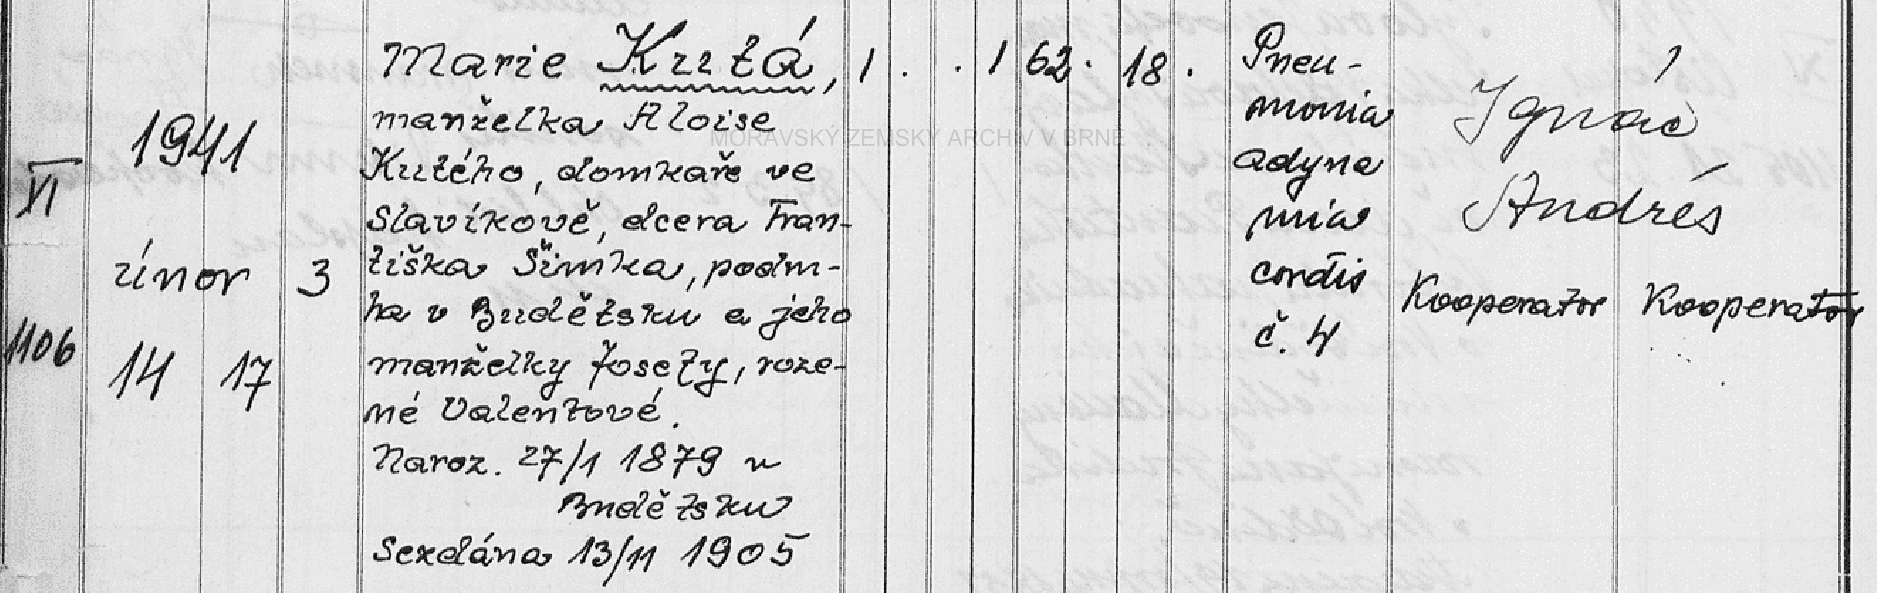 Marie Krutá, 1 . . 1 62. 18.
manželka Aloise
Krutého, domkaře ve
Slavíkově, dcera Fran-
tiška Šimka, podru-
ha v Budětsku a jeho
manželky Josefy, roze-
né Valentové.
Naroz. 27/1 1879 v
Budětsku
Sezdána 13/11 1905
VI
1106
1941
únor 3
14 17
Pneu-
monia
adyna
mia
cordis
č. 4
Ignác
Andrés
Kooperator Kooperator
MORAVSKÝ ZEMSKÝ ARCHIV V BRNĚ